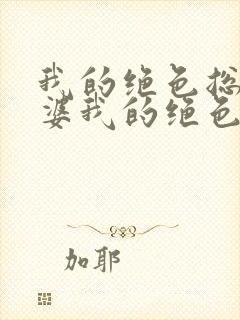 我的绝色总
婆我的绝色
加耶